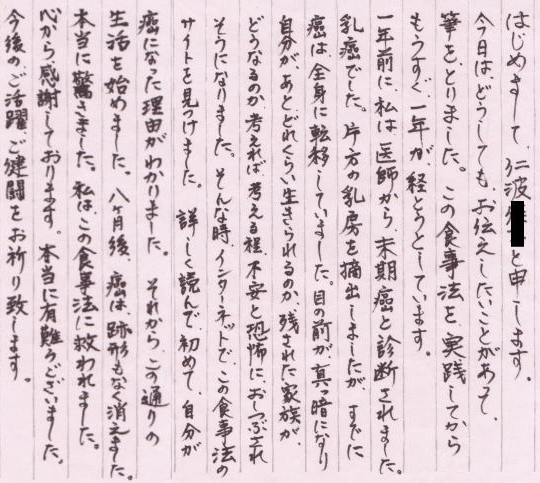 はじめまして、仁波 と申します。
今日は、どうしても、お伝えしたいことがあって、
筆をとりました。この食事法を、実践してから
もうすぐ、一年が、経とうとしています。
一年前に、私は、医師から、末期癌と診断されました。
乳癌でした。片方の乳房を摘出しましたが、すでに
癌は、全身に転移していました。目の前が、真っ暗になり
自分が、あと、どれくらい生きられるのか、残された家族が、
どうなるのか、考えれば考える程、不安と恐怖に、おしつぶされ
そうになりました。そんな時、インターネットで、この食事法の
サイトを見つけました。詳しく読んで、初めて、自分が
癌になった理由がわかりました。それから、この通りの
生活を始めました。八ヶ月後、癌は、跡形もなく消えました。
本当に驚きました。私は、この食事法に救われました。
心から感謝しております。本当に有難うございました。
今後のご活躍、ご健闘をお祈り致します。